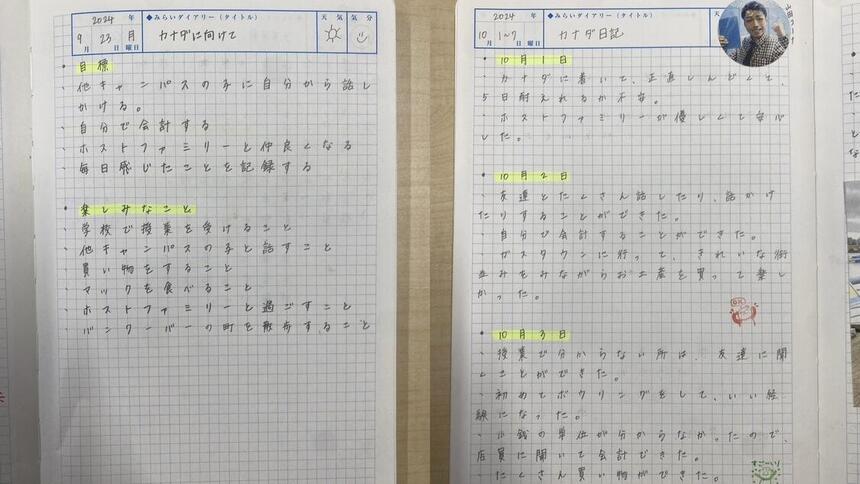 2024 年 ◆みらいダイアリー(タイトル) 天気 気分
9月 23日 月曜日 カナダに向けて
・目標
・他キャンパスの子に自分から話し
かける。
・自分で会計する
・ホストファミリーと仲良くなる
・毎日感じたことを記録する
・楽しみなこと
・学校で授業を受けること
・他キャンパスの子と話すこと
・買い物をすること
・マックを食べること
・ホストファミリーと過ごすこと
・バンクーバーの町を散歩すること
2024 年 ◆みらいダイアリー(タイトル) 天
10月 1~7日 曜日 カナダ日記
・10月1日
・カナダに着いて、正直しんどくて、
5日耐えれるか不安。
・ホストファミリーが優しくて安心
した。
・10月2日
・友達とたくさん話したり、話かけ
たりすることができた。
・自分で会計することができた。
・ガスタウンに行って、きれいな街
並みをみながらお土産を買って楽し
かった。
・10月3日
・授業で分からない所は、友達に聞
くことができた。
・初めてボウリングをして、いい経
験になった。
・小銭の単位が分からなかったので、
店員に聞いて会計できた。
・たくさん買い物ができた。
すご〜い!